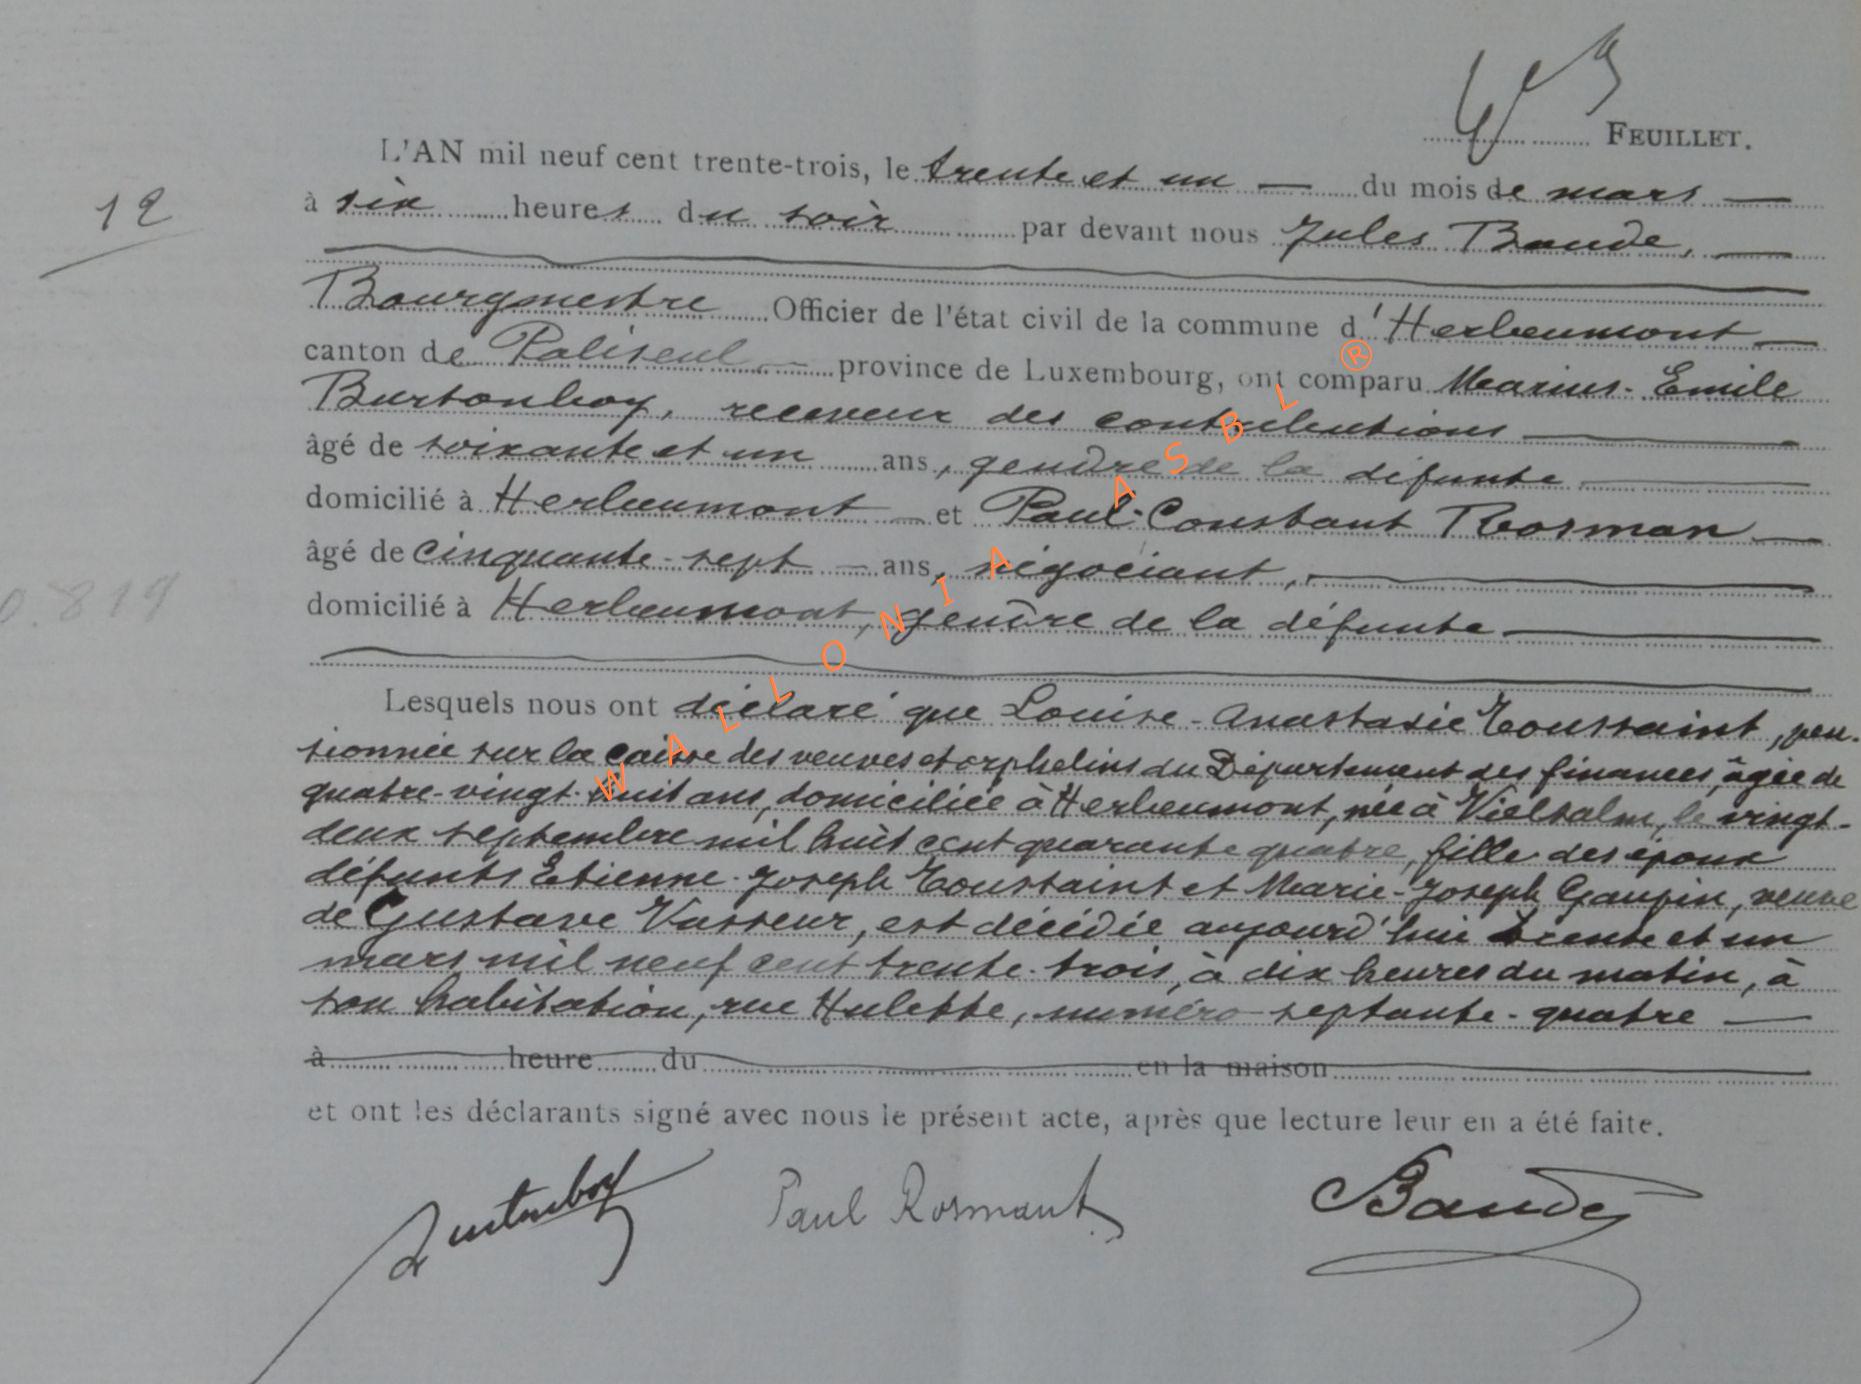 FEUILLET.
L'AN mil neuf cent trente-trois, le trente et un du mois de mars
12
à six heures du soir par devant nous Jules Baude,
Bourgmestre Officier de l'état civil de la commune d'Herbeumont
canton de Paliseul province de Luxembourg, ont comparu Marius-Emile
Burtonboy, receveur des contributions
âgé de soixante et un ans, gendre de la défunte
domicilié à Herbeumont et Paul-Constant Rosman
âgé de cinquante-sept ans, négociant,
0.819
domicilié à Herbeumont, gendre de la défunte
Lesquels nous ont déclaré que Louise-Anastasie Toussaint, pen-
sionnée sur la caisse des veuves et orphelins du Département des finances, âgée de
quatre-vingt-huit ans, domiciliée à Herbeumont, née à Vielsalm, le vingt-
deux septembre mil huit cent quarante quatre, fille des époux
défunts Etienne-Joseph Toussaint et Marie-Joseph Gaupin, veuve
de Gustave Vasseur, est décédée aujourd'hui trente et un
mars mil neuf cent trente-trois, à dix heures du matin, à
son habitation, rue Hulette, numéro septante-quatre
à heure du en la maison
et ont les déclarants signé avec nous le présent acte, après que lecture leur en a été faite.
Burtonboy Paul Rosmant Baude
WALLONIA ASBL ®